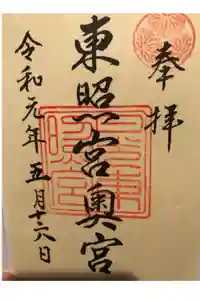 奉拝
東照宮奥宮
令和元年五月十六日